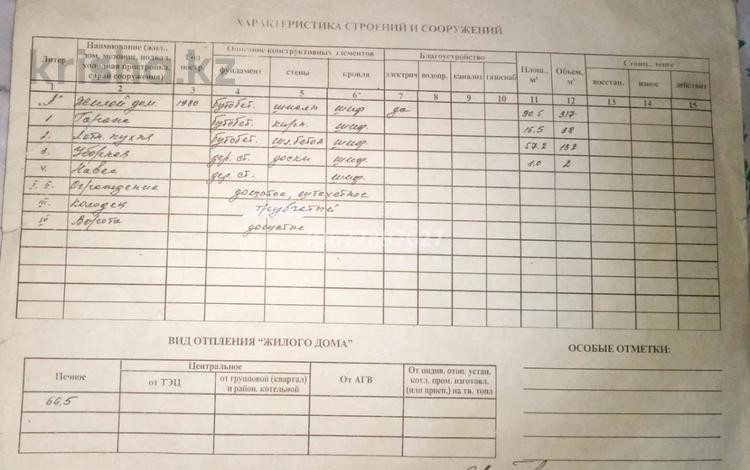 ХАРАКТЕРИСТИКА СТРОЕНИЙ И СООРУЖЕНИЙ
Литер Наименование (жил., дом, мезонин, подвал, холодная пристройка, сарай сооружения) Год постр. Описание конструктивных элементов Благоустройство Площ., м² Объем, м³ Стоим., тенге
фундамент стены кровля электрич водопр. канализ газоснаб восстан. износ действит
2 3 4 5 6 7 8 9 10 11 12 13 14 15
А Жилой дом. 1980 бутобет. шпалы шиф да 90.5 317
1 Гараж бутобет. кирп. шиф. 16.5 38
2. Летн. кухня бутобет. шл.бетон шиф. 57.2 132
3. Уборная дер. ст. доски шиф. 1.0 2
4. Навес дер. ст. шиф.
I. II. Ограждение дощатое, штакетное
III. Колодец трубчатый
IV Ворота дощатые
krisha.kz
ВИД ОТПЛЕНИЯ “ЖИЛОГО ДОМА”
ОСОБЫЕ ОТМЕТКИ:
Печное Центральное От АГВ От индив. отоп. устан. котл. пром. изготовл. (или присп.) на тв. топл
от ТЭЦ от групповой (квартал) и район. котельной
66.5